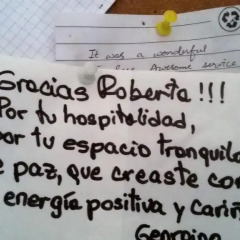 It was a wonderful
Awesome service
Gracias Roberta !!!
Por tu hospitalidad,
por tu espacio tranquilo
e paz, que creaste con
energía positiva y cariñ
Georgina